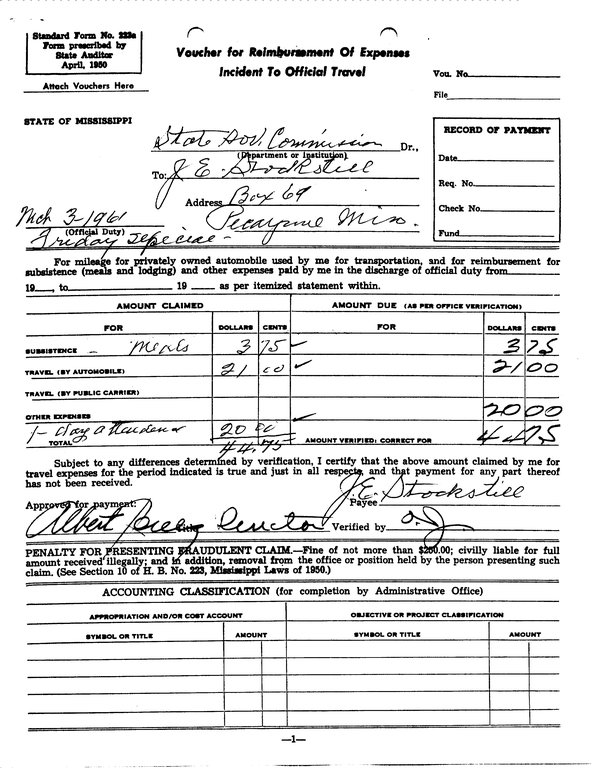 Standard Form No. 223a
Form prescribed by
State Auditor
April, 1950
Attach Vouchers Here
Voucher for Reimbursement Of Expenses
Incident To Official Travel
Vou. No.
File
STATE OF MISSISSIPPI
State Sov. Commission Dr.,
(Department or Institution)
To: J. E. Stockstill
Address Box 69
Mch 3-1961 Picayune Miss.
(Official Duty)
Friday
RECORD OF PAYMENT
Date
Req. No.
Check No.
Fund
For mileage for privately owned automobile used by me for transportation, and for reimbursement for
subsistence (meals and lodging) and other expenses paid by me in the discharge of official duty from
19 , to 19 as per itemized statement within.
AMOUNT CLAIMED AMOUNT DUE (AS PER OFFICE VERIFICATION)
FOR DOLLARS CENTS FOR DOLLARS CENTS
SUBSISTENCE – Meals 3 75 ✓ 3 75
TRAVEL (BY AUTOMOBILE) 21 00 ✓ 21 00
TRAVEL (BY PUBLIC CARRIER)
OTHER EXPENSES ✓ 20 00
1- Day attendance 20 00
TOTAL 44.75 AMOUNT VERIFIED: CORRECT FOR 44 75
Subject to any differences determined by verification, I certify that the above amount claimed by me for
travel expenses for the period indicated is true and just in all respects, and that payment for any part thereof
has not been received.
Payee J. E. Stockstill
Approved for payment:
Albert Director Verified by
PENALTY FOR PRESENTING FRAUDULENT CLAIM.—Fine of not more than $250.00; civilly liable for full
amount received illegally; and in addition, removal from the office or position held by the person presenting such
claim. (See Section 10 of H. B. No. 223, Mississippi Laws of 1950.)
ACCOUNTING CLASSIFICATION (for completion by Administrative Office)
APPROPRIATION AND/OR COST ACCOUNT OBJECTIVE OR PROJECT CLASSIFICATION
SYMBOL OR TITLE AMOUNT SYMBOL OR TITLE AMOUNT
—1—